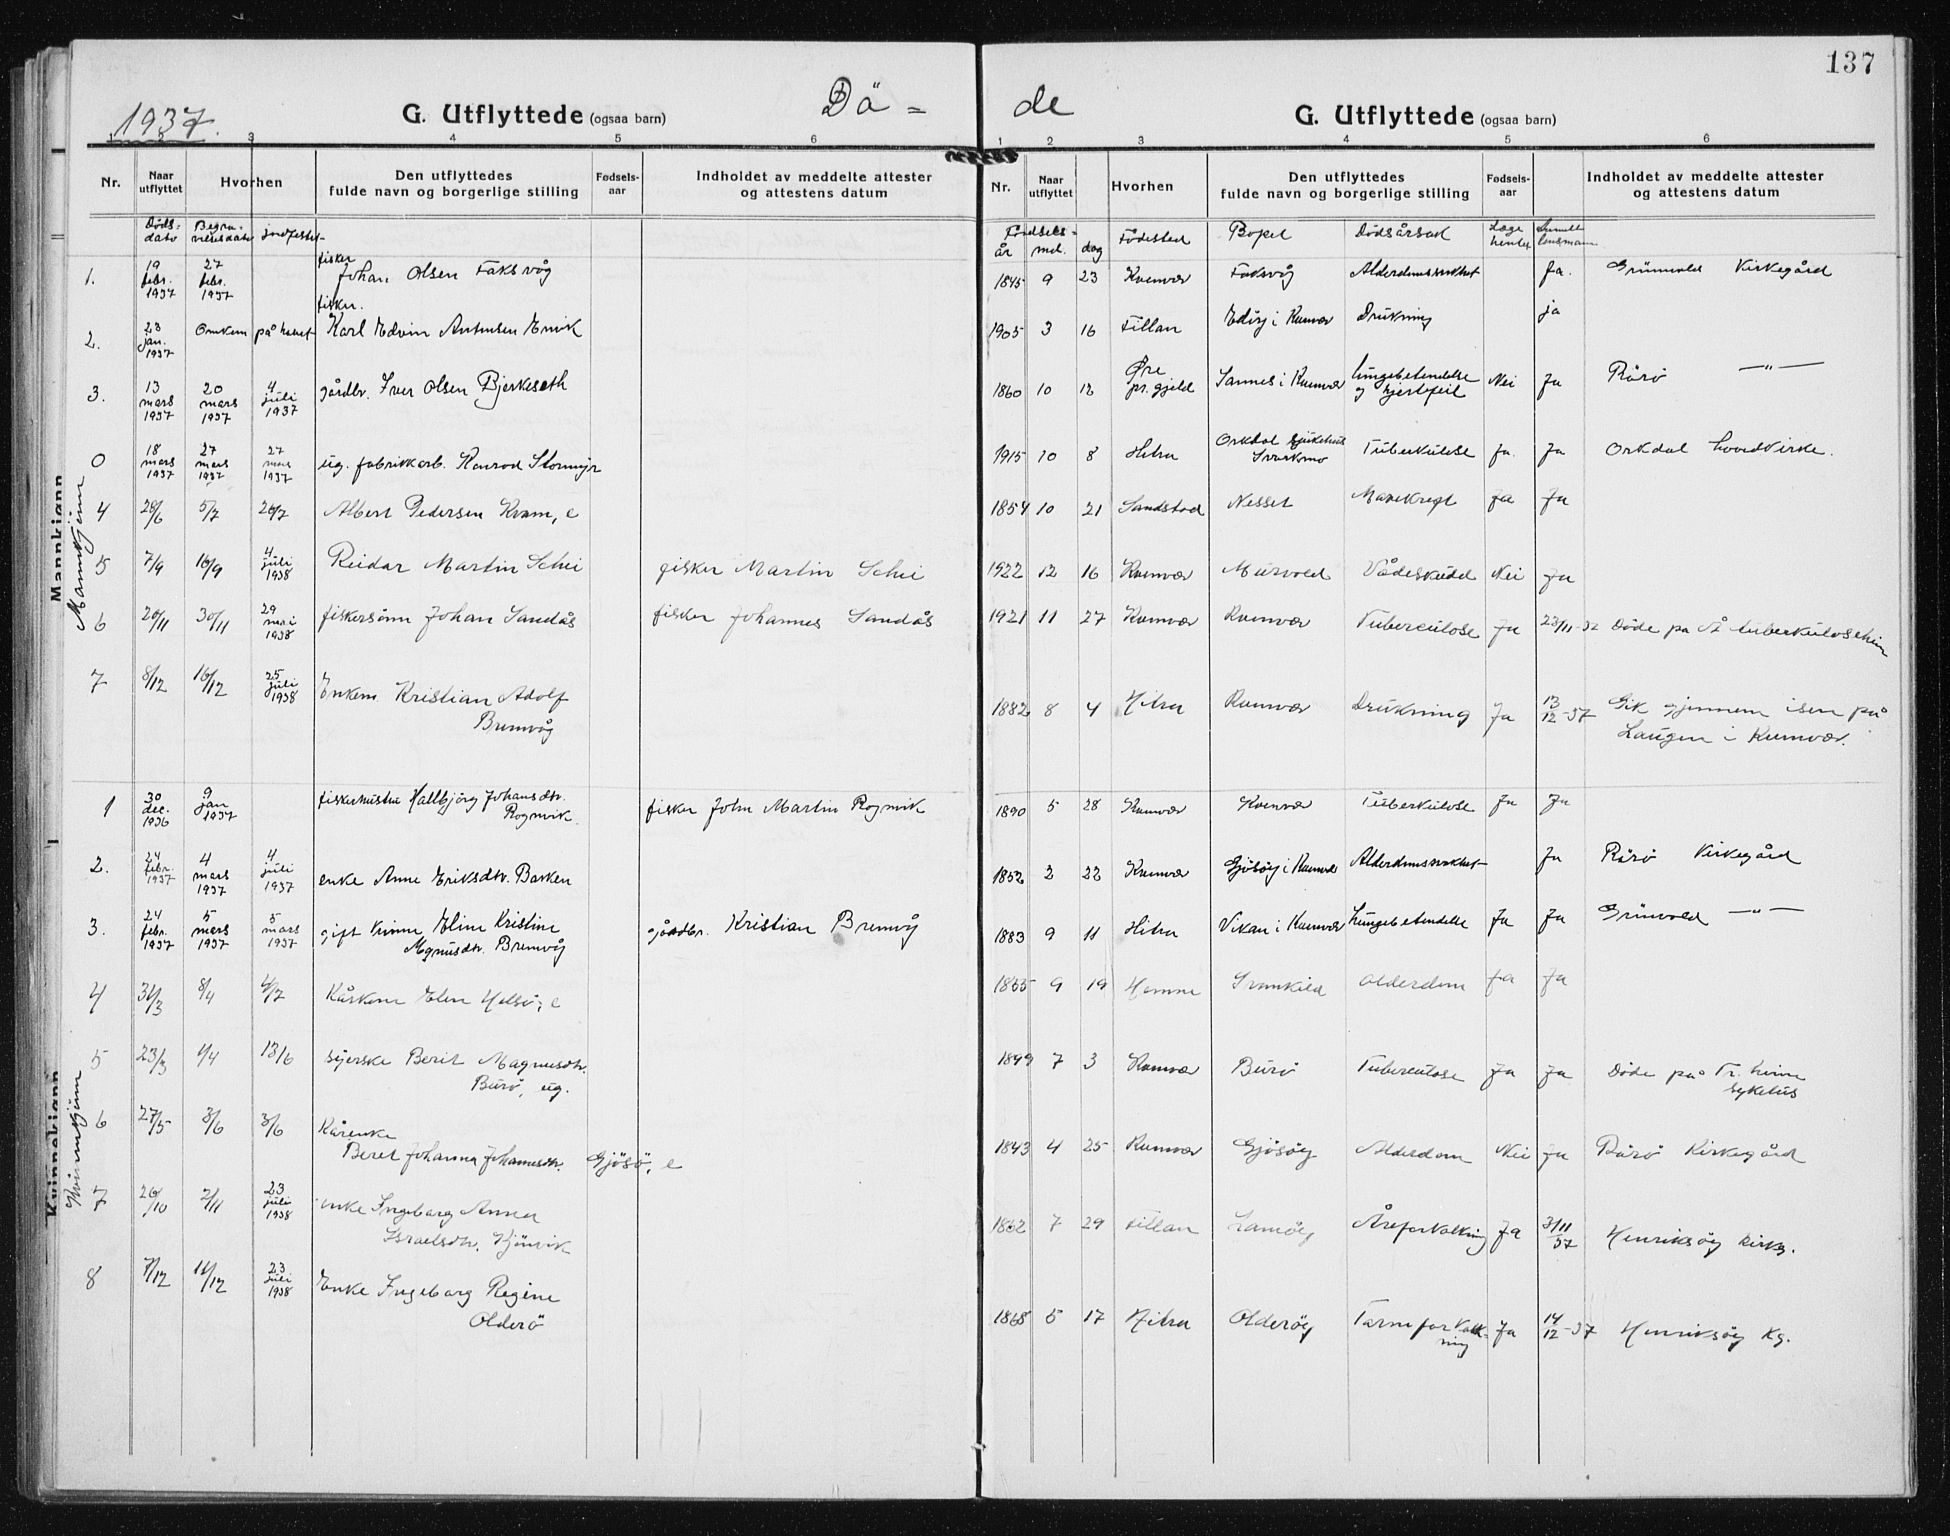 137
1937.
Dö = de
G. Utflyttede (ogsaa barn)
G. Utflyttede (ogsaa barn)
1 2 3 4 5 6
1 2 3 4 5 6
Nr. Naar utflyttet Hvorhen Den utflyttedes fulde navn og borgerlige stilling Fødsels-aar Indholdet av meddelte attester og attestens datum
Nr. Naar utflyttet Hvorhen Den utflyttedes fulde navn og borgerlige stilling Fødsels-aar Indholdet av meddelte attester og attestens datum
Døds-dato Begra-velsesdato jordfestet
Fødsels-år md. dag Fødested Bopel Dødsårsak Læge hentet lensmann
Mannkjønn
Mannkjønn
1. 19 febr. 1937 27 febr. 1937 fisker Johan Olsen Faksvåg 1845 9 23 Kvenvær Faksvåg Alderdomssvakhet Ja. Grünvold Kirkegård
2. 23 jan. 1937 Omkom på havet fisker. Karl Edvin Antonsen Envik 1905 3 16 Fillan i Kvenvær Drukning ja
3. 13 mars 1937 20 mars 1937 4 juli 1937 gårdbr. Iver Olsen Bjerkeseth 1860 10 12 Øre pr.gjeld Sannes i Kvenvær Lungebetendelse og hjertefeil Nei Ja Rårö —"—
0 18 mars 1937 27 mars 1937 27 mars 1937 ug. fabrikkarb. Konrad Stormyr 1915 10 8 Hitra Orkdal sjukehus Svorkmo Tuberkulose ja. Ja Orkdal hovedkirke.
4 28/6 5/7 20/7 Albert Pedersen Kvam, e 1854 10 21 Sandstad Nesset Mavekreft Ja Ja
5 7/9 16/9 4 juli 1938 Reidar Martin Schei fisker Martin Schei 1922 12 16 Kvenvær Murvold Vådeskudd Nei Ja
6 20/11 30/11 29 mai 1938 fiskersönn Johan Sandås fisker Johannes Sandås 1921 11 27 Kvenvær Kvenvær Tuberculose Ja 23/11-37 Döde pa Å tuberkuloseheim
7 8/12 16/12 25 juli 1938 Enkem. Kristian Adolf Bremvåg 1882 8 4 Hitra Kvenvær Drukning Ja 13/12-37 Gik gjennem isen på Laugen i Kvenvær.
Kvinnekjønn
Kvinnekjønn
1 30 dec. 1936 9 jan 1937 fiskerhustru Hallbjörg Johansdtr. Rognvik fisker John Martin Rognvik 1890 5 28 Kvenvær Kvenvær Tuberkulose Ja Ja
2. 24 febr. 1937 4 mars 1937 4 juli 1937 enke Anne Eriksdtr. Barken 1852 2 22 Kvenvær Gjösöy i Kvenvær Alderdomssvakhet Ja Rårö Kirkegård
3. 24 febr. 1937 5 mars 1937 5 mars 1937 gift kvinne Eline Kristine Magnusdtr. Bremvåg gårdbr. Kristian Bremvåg 1883 9 11 Hitra Vikan i Kvenvær Lungebetendelse Ja Ja Grünvold —"—
4 31/3 8/4 4/7 Kårkone Elen Helsö, e 1855 9 19 Hemne alderdom Ja Ja
5 23/3 1/4 13/6 syerske Berit Magnusdtr. Burö, ug. 1899 7 3 Kvenvær Burö Tuberculose Ja Ja Döde på Tr.heim sykehus
6 27/5 3/6 3/6 Kårenke Beret Johanna Johannesdtr. Gjösö, e 1843 4 25 Kvenvær Gjösöy Alderdom Nei Ja Rårö Kirkegård
7 26/10 2/11 23 juli 1938 enke Ingeborg Anna Israelsdtr. Kjönvik 1862 7 29 Fillan Lamöy Åreforkalkning Ja 3/11 37 Henriksöy kirkg.
8 7/12 14/12 23 juli 1938 Enke Ingeborg Regine Olderö 1868 5 17 Hitra Olderöy Ja 14/12-37 Henriksöy Kg.